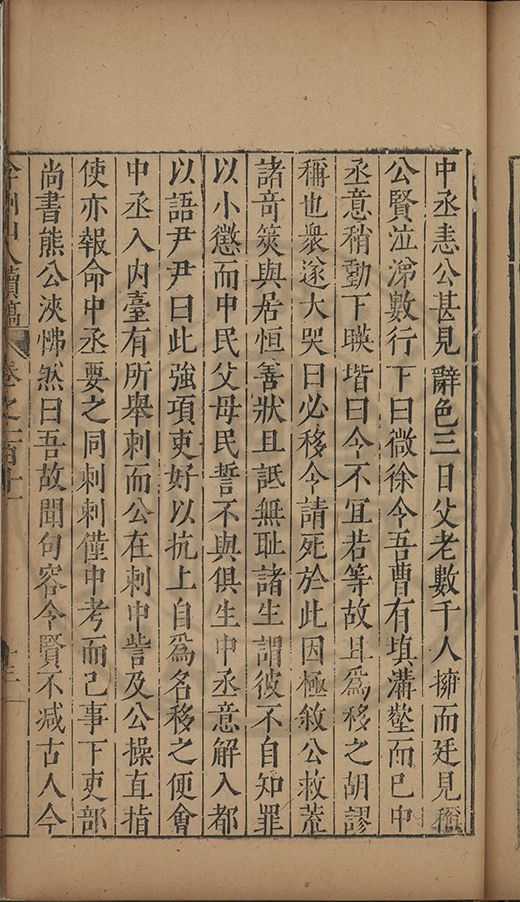 中丞恚公甚見辭色三日父老數千人擁而廷見稱
公賢泣涕數行下曰微徐令吾曹有填溝壑而已中
丞意稍動下瞁堦曰今不冝若等故且爲移之胡謬
稱也衆遂大哭曰必移令請死於此因極敘公救荒
諸竒筴與居恒善狀且詆無耻諸生謂彼不自知罪
以小懲而中民父母民誓不與俱生中丞意解入都
以語尹尹曰此強項吏好以抗上自爲名移之便會
中丞入内臺有所舉刺而公在刺中訾及公操直指
使亦報命中丞要之同刺刺僅中考而已事下吏部
尚書熊公浹怫然曰吾故聞句容令賢不減古人今
弇州山人續稿 卷之一百十一